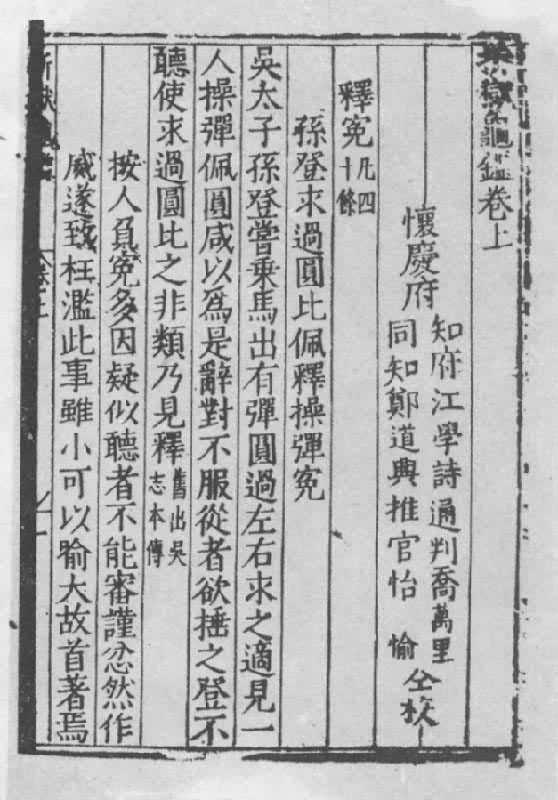 折獄龜鑑卷上
懷慶府
知府江學詩通判喬萬里
同知鄭道興推官怡愉
仝校
釋冤凡四十條
孫登求過圓比佩釋操彈冤
吳太子孫登嘗乘馬出有彈圓過左右求之適見一
人操彈佩圓咸以爲是辭對不服從者欲捶之登不
聽使求過圓比之非類乃見釋舊出吳志本傳
按人負冤多因疑似聽者不能審謹忿然作
威遂致枉濫此事雖小可以喻大故首著焉